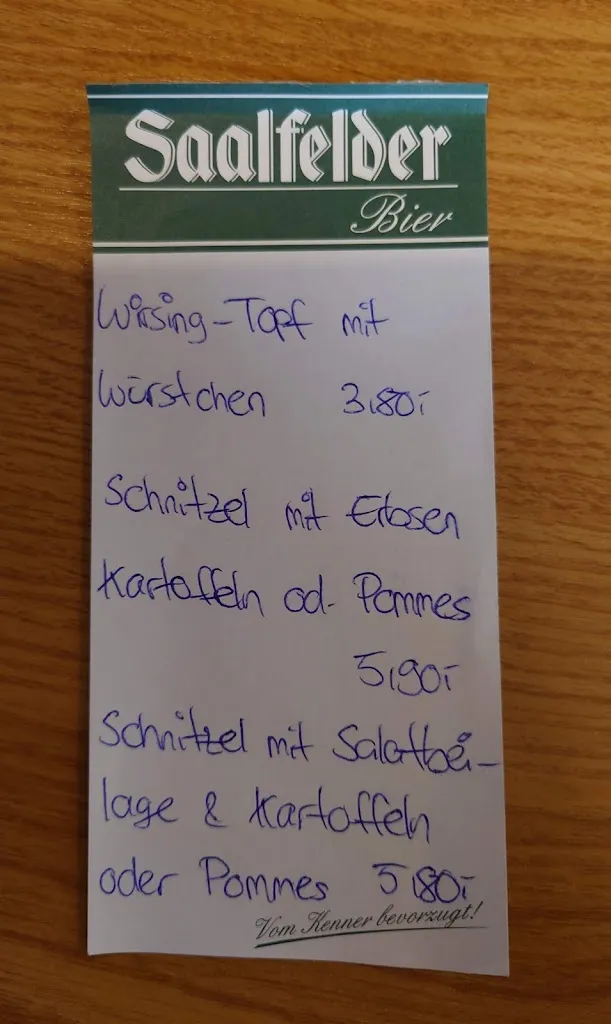 Saalfelder
Bier
Wirsing-Topf mit
Würstchen 3,80,-
Schnitzel mit Erbsen
Kartoffeln od. Pommes
5,90,-
Schnitzel mit Salatbei-
lage & Kartoffeln
oder Pommes 5,80,-
Vom Kenner bevorzugt!